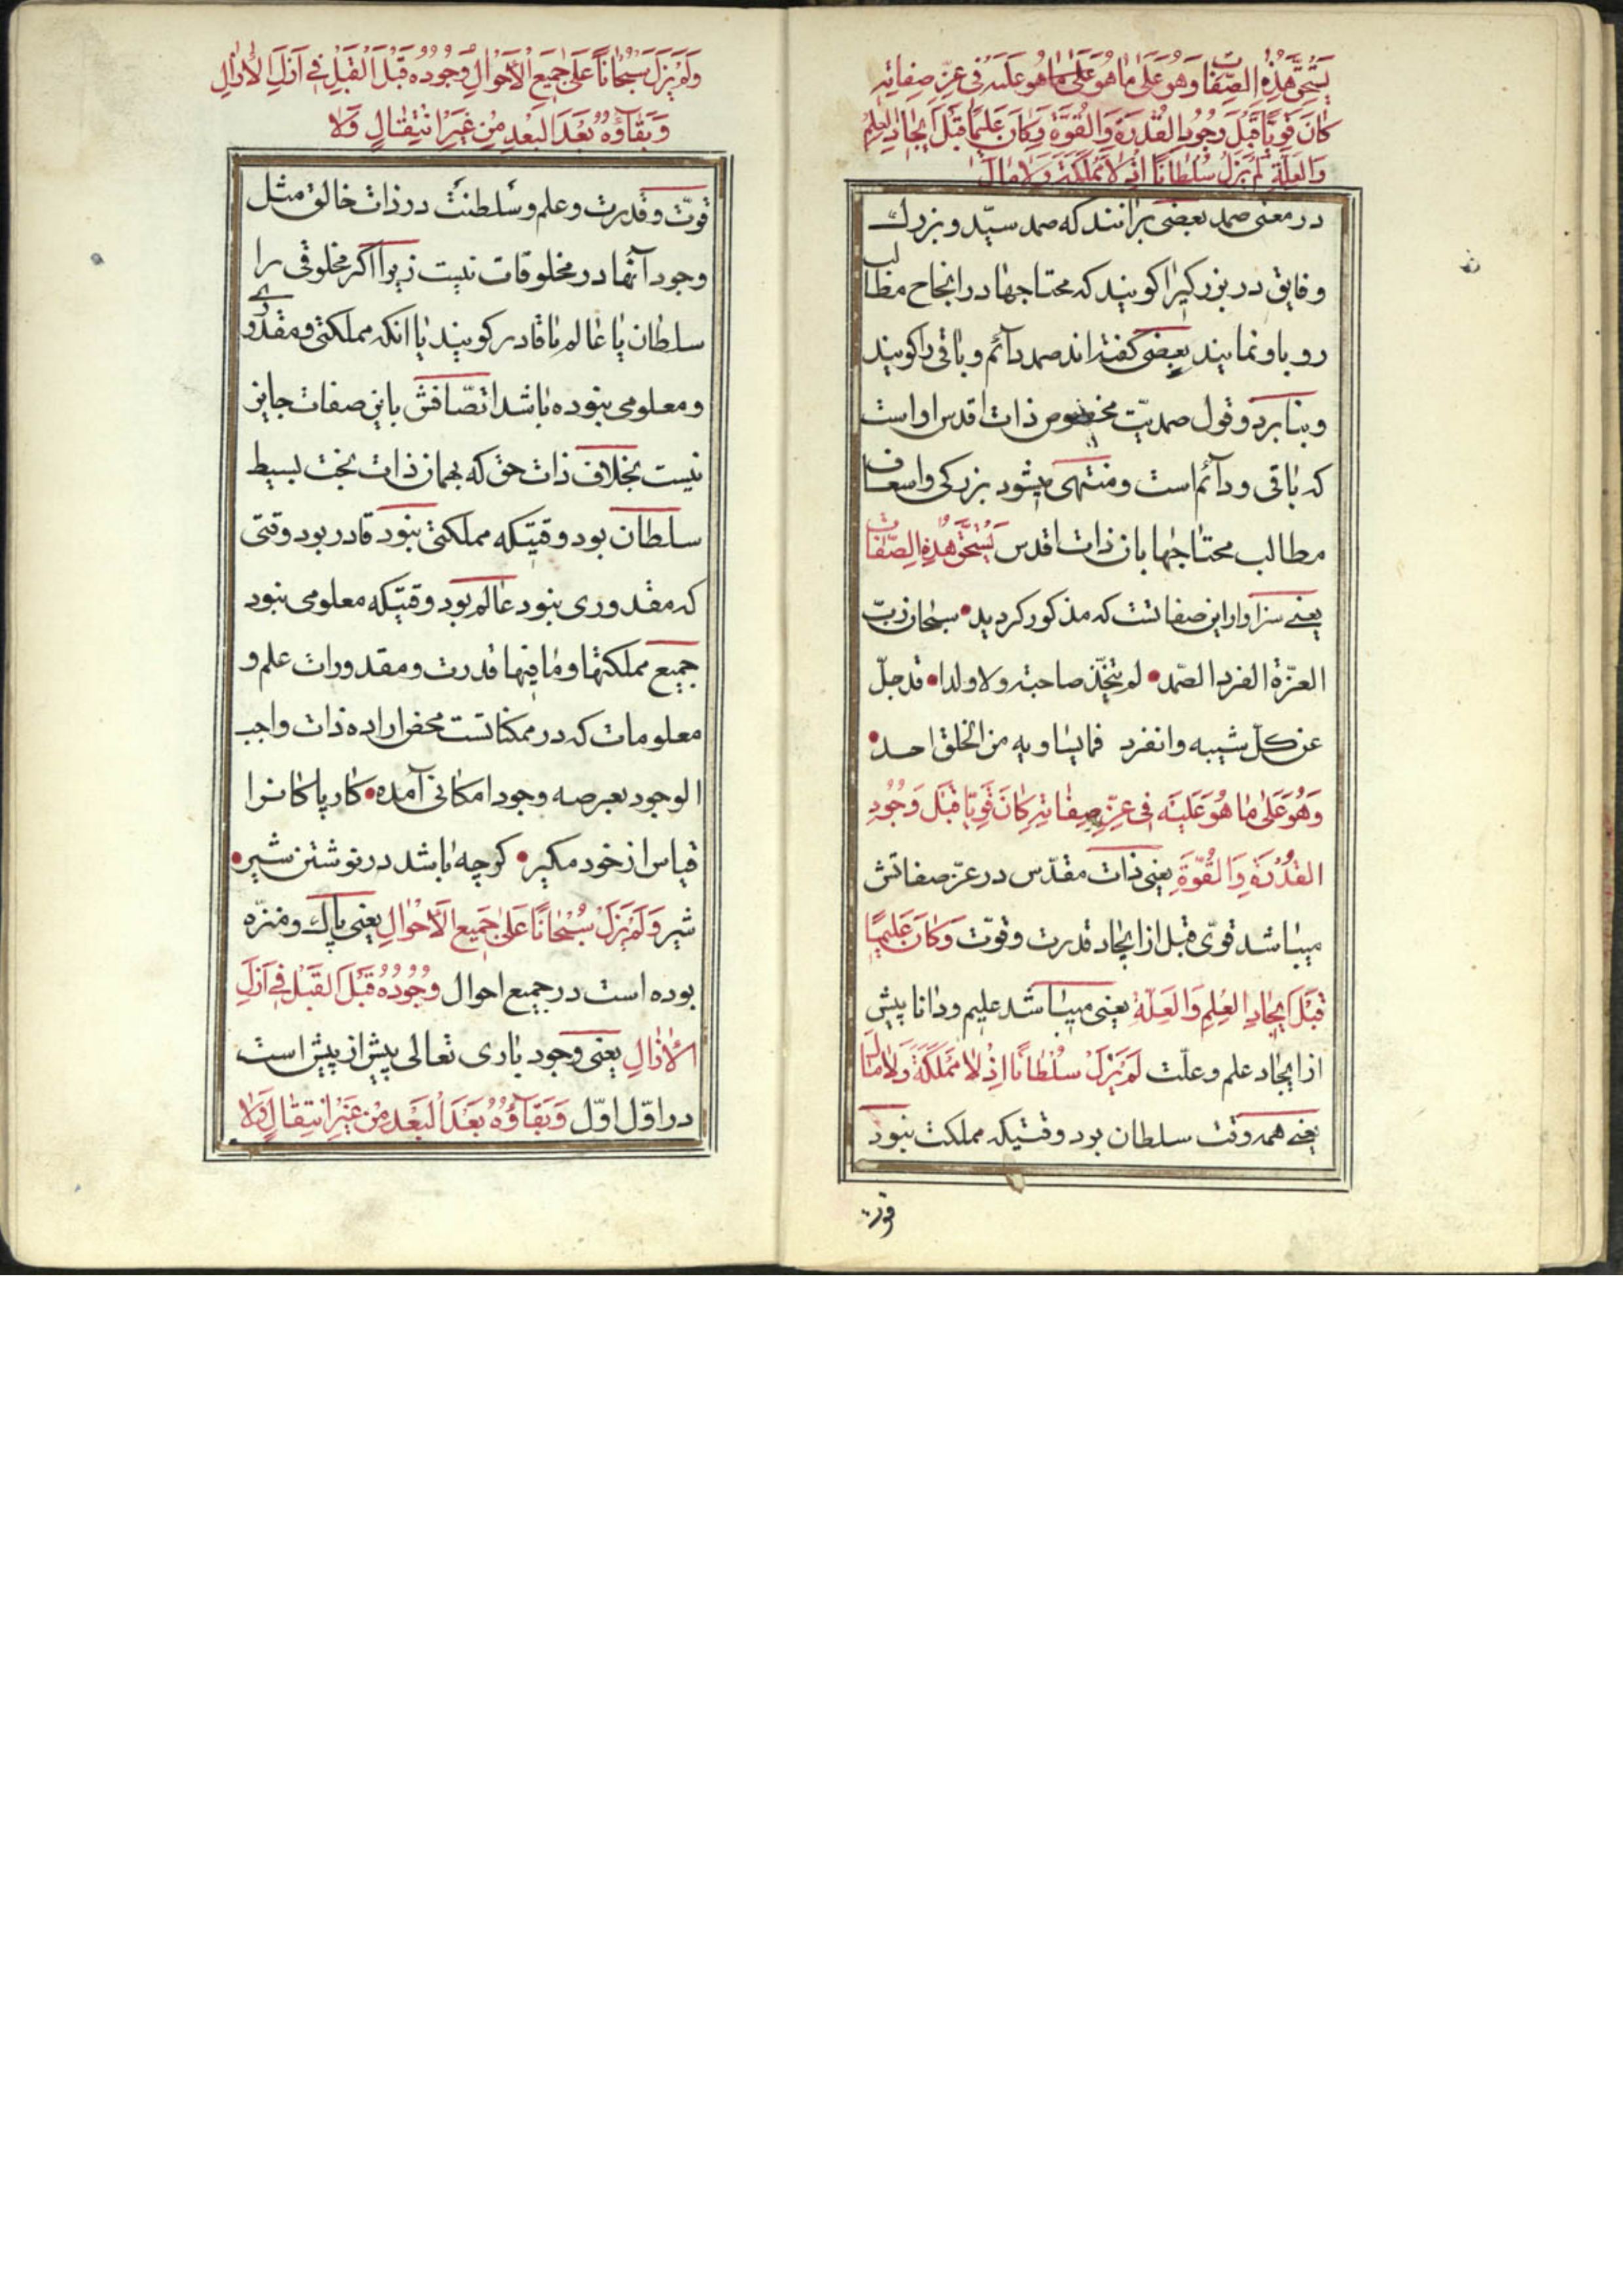 یَسْتَحِقُّ هٰذِهِ الصِّفَاتِ وَهُوَ عَلٰی مَا هُوَ عَلٰی مَا هُوَ عَلَیْهِ فِی عِزِّ صِفَاتِهِ
کَانَ قَوِیًّا قَبْلَ وُجُودِ الْقُدْرَةِ وَالْقُوَّةِ وَکَانَ عَلِیمًا قَبْلَ اِیجَادِ الْعِلْمِ
وَالْعِلَّةِ لَمْ یَزَلْ سُلْطَانًا اِذْ لَا مَمْلَکَةَ وَلَا مَالَ
در معنی صمد بعضی برانند که صمد سیّد و بزرك
و فایق در بزرکیرا کویند که محتاجها در انجاح مطالب
رو باو نمایند بعضی کفته‌اند صمد دآئم و باقی را کویند
و بنابر دو قول صمدیّت مخصوص ذات اقدس او است
که باقی و دآئم است و منتهی میشود بزرکی و اسعاف
مطالب محتاجها بان ذات اقدس یَسْتَحِقُّ هٰذِهِ الصِّفَات
یعنی سزاوار این صفاتست که مذکور کردید سبحان ربّ
العزّة الفرد الصّمد لم یتخّذ صاحبة ولا ولدا قد جلّ
عن کلّ شبیه وانفرد فما یساویه من الخلق احد
وَهُوَ عَلٰی مَا هُوَ عَلَیْهِ فِی عِزِّ صِفَاتِهِ کَانَ قَوِیًّا قَبْلَ وُجُودِ
الْقُدْرَةِ وَالْقُوَّةِ یعنی ذات مقدّس در عزّ صفاتش
میباشد قویّ قبل از ایجاد قدرت و قوّت وَکَانَ عَلِیمًا
قَبْلَ اِیجَادِ الْعِلْمِ وَالْعِلَّةِ یعنی میباشد علیم و دانا پیش
از ایجاد علم و علّت لَمْ یَزَلْ سُلْطَانًا اِذْ لَا مَمْلَکَةَ وَلَا مَالَ
یعنی همه وقت سلطان بود وقتیکه مملکت نبود
قوت
وَلَمْ یَزَلْ سُبْحَانًا عَلٰی جَمِیعِ الْاَحْوَالِ وُجُودُهُ قَبْلَ الْقَبْلِ فِی اَزَلِ الْاٰزَالِ
وَبَقَاؤُهُ بَعْدَ الْبَعْدِ مِنْ غَیْرِ انْتِقَالٍ وَلَا
قوّت و قدرت و علم و سلطنت در ذات خالق مثل
وجود آنها در مخلوقات نیست زیرا اکر مخلوقی را
سلطان یا عالم یا قادر کویند یا انکه مملکتی و مقدوری
و معلومی نبوده باشد اتصّافش باین صفات جایز
نیست بخلاف ذات حق که بهمان ذات بحت بسیط
سلطان بود وقتیکه مملکتی نبود قادر بود وقتی
که مقدوری نبود عالم بود وقتیکه معلومی نبود
جمیع مملکتها و ما فیها قدرت و مقدورات علم و
معلومات که در ممکناتست محض اراده ذات واجب
الوجود بعرصه وجود امکانی آمده کار پاکانرا
قیاس از خود مکیر کرچه باشد در نوشتن شیر
شیر وَلَمْ یَزَلْ سُبْحَانًا عَلٰی جَمِیعِ الْاَحْوَالِ یعنی پاك و منزّه
بوده است در جمیع احوال وُجُودُهُ قَبْلَ الْقَبْلِ فِی اَزَلِ
الْاٰزَالِ یعنی وجود باری تعالی پیش از پیش است
در اوّل اوّل وَبَقَاؤُهُ بَعْدَ الْبَعْدِ مِنْ غَیْرِ انْتِقَالٍ وَلَا